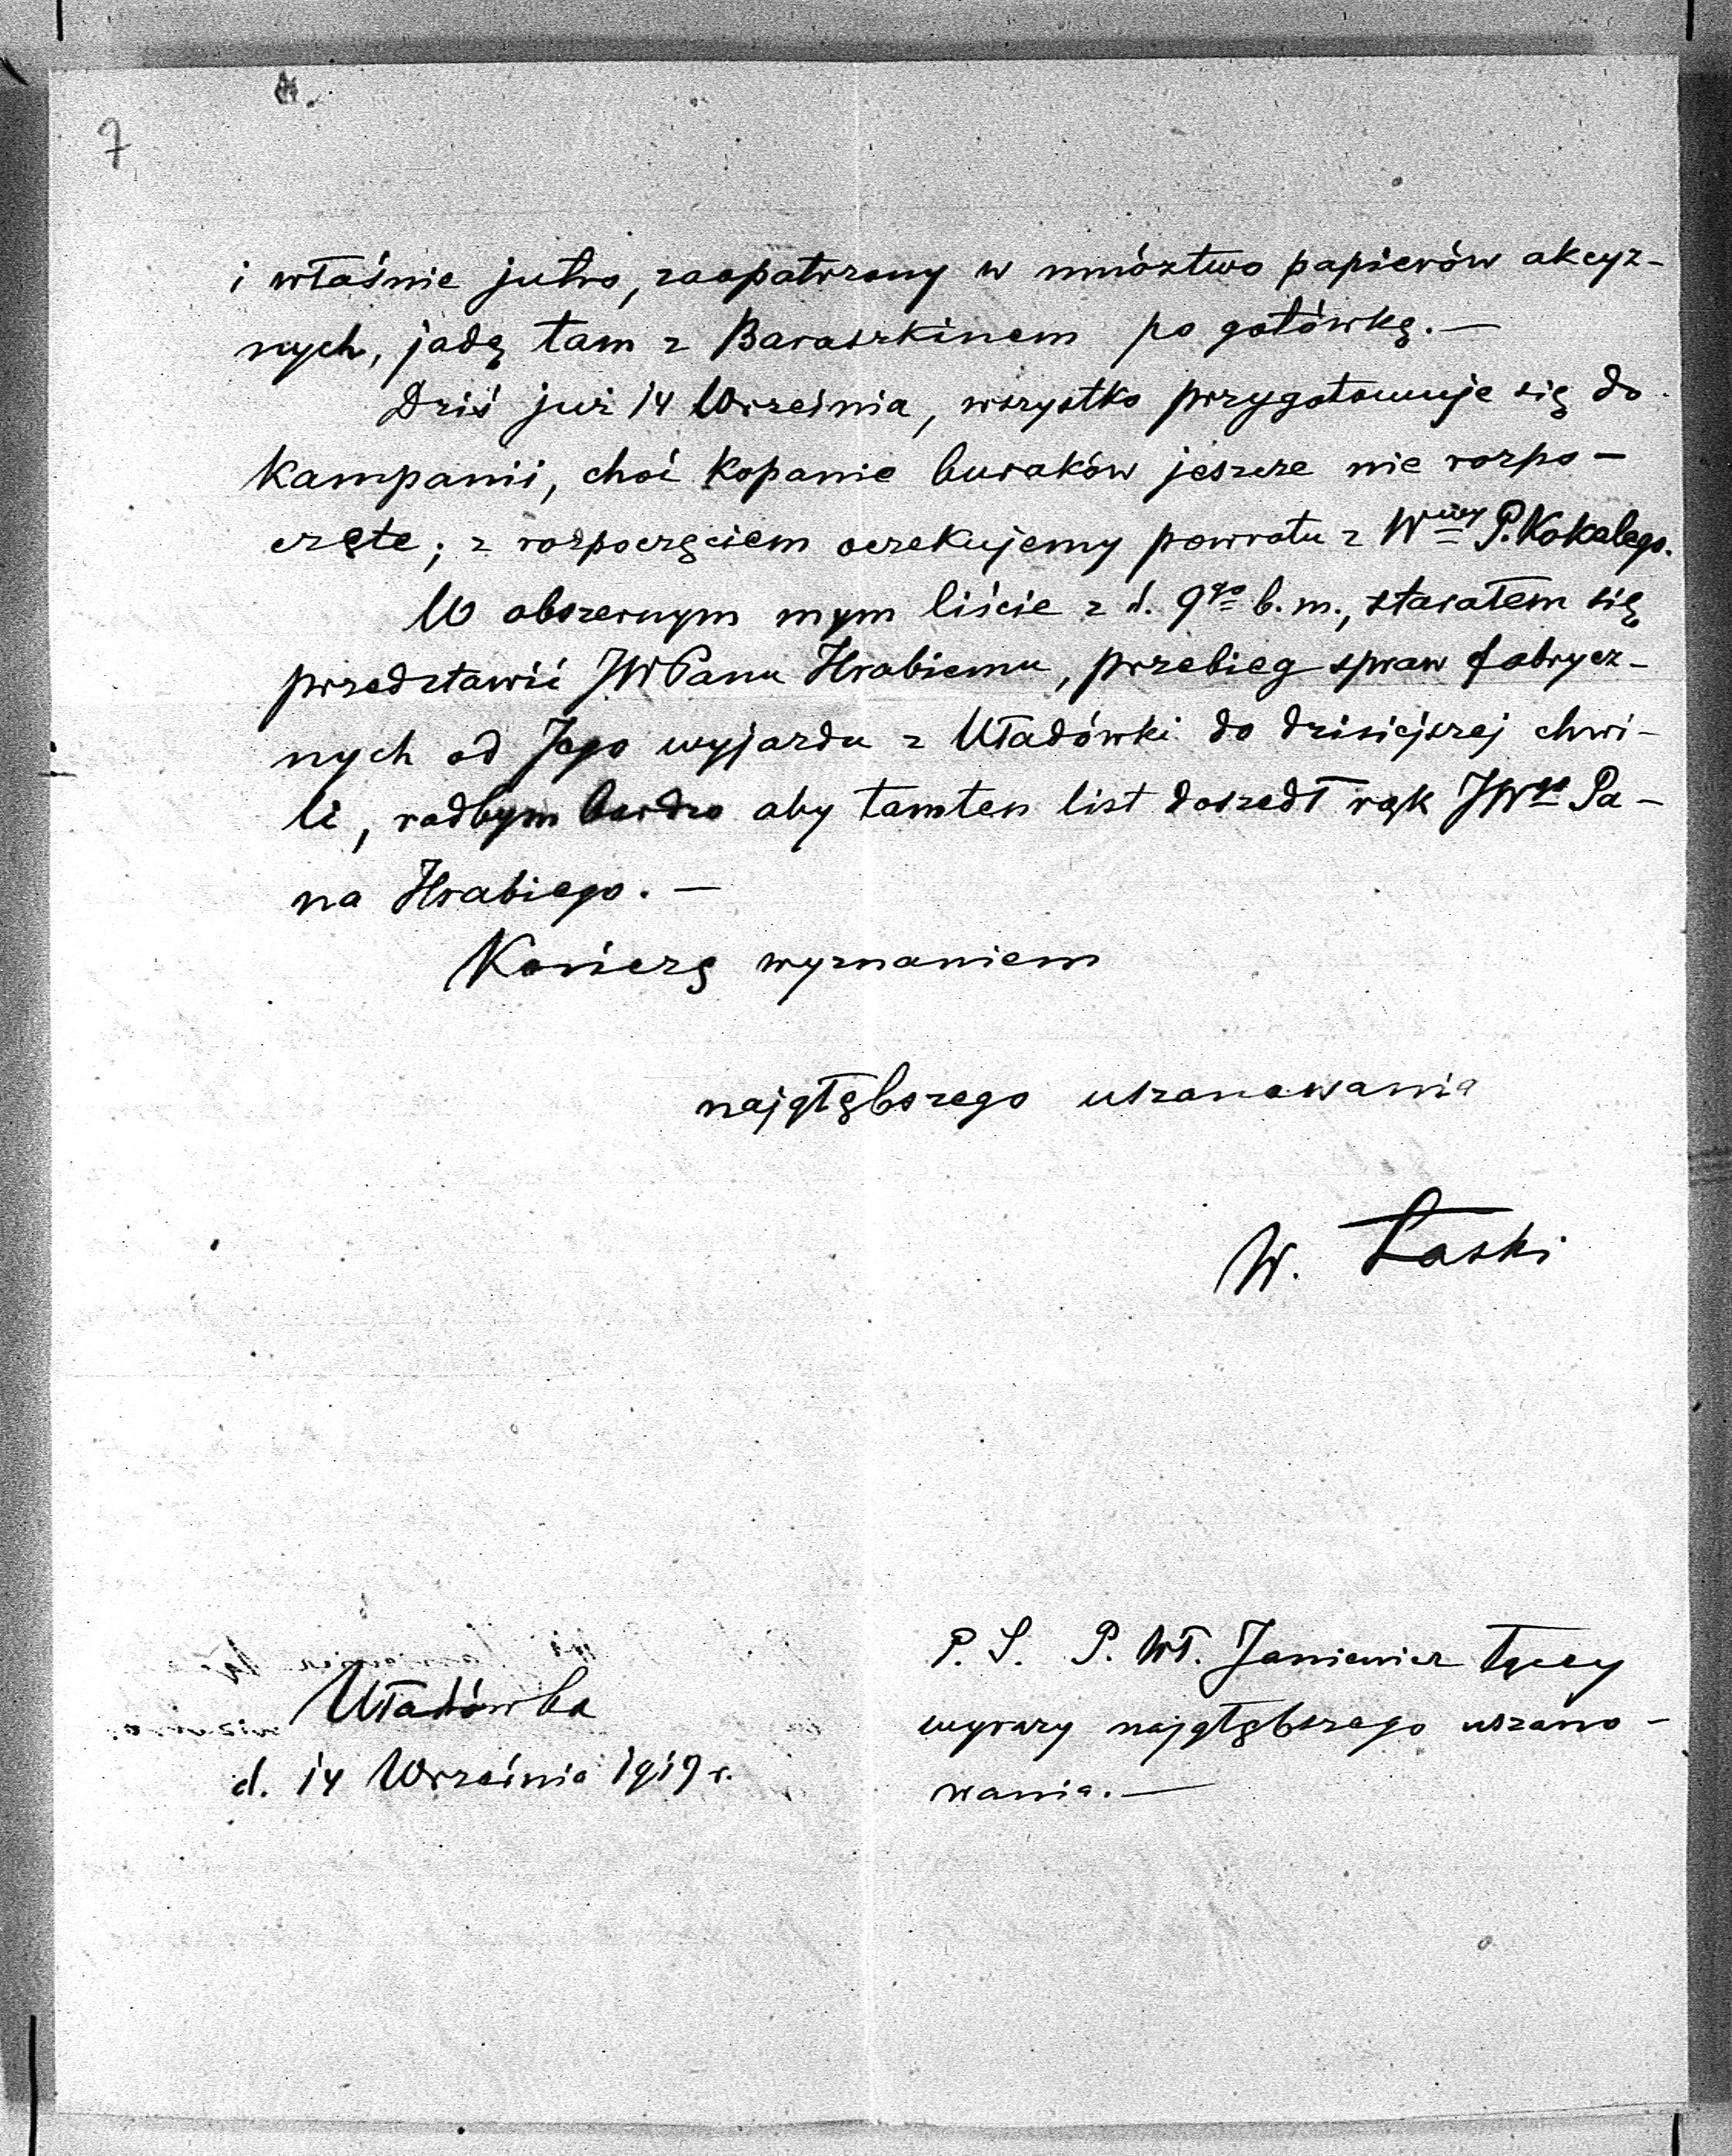 7
i właśnie jutro, zaopatrzony w mnóztwo papierów akcyz-
nych, jadę tam z Baraszkinem po gotówkę. —
Dziś już 14 Września, wszystko przygotowuje się do
Kampanii, choć kopanie buraków jeszcze nie rozpo-
częte; z rozpoczęciem oczekujemy powrotu z W P. Kokelego.
W obszernym mym liście z d. 9go b. m., starałem się
przedztawić JWPanu Hrabiemu, przebieg spraw fabrycz-
nych od Jego wyjazdu z Uładówki do dzisiejszej chwi-
li, radbym bardzo aby tamten list doszedł rąk JWgo Pa-
na Hrabiego. —
Kończę wyznaniem
najgłębszego uszanowania
W. Łaski
P. S. P. Wł. Janiewicz łączy
wyrazy najgłębszego uszano-
wania. —
Uładówka
d. 14 Września 1919 r.